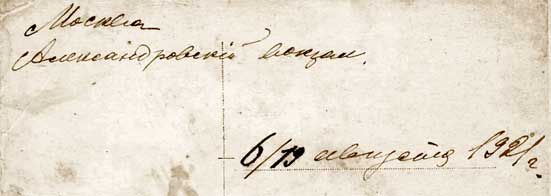 Москва
Александровскій вокзал.
6/19 августа 1921 г.